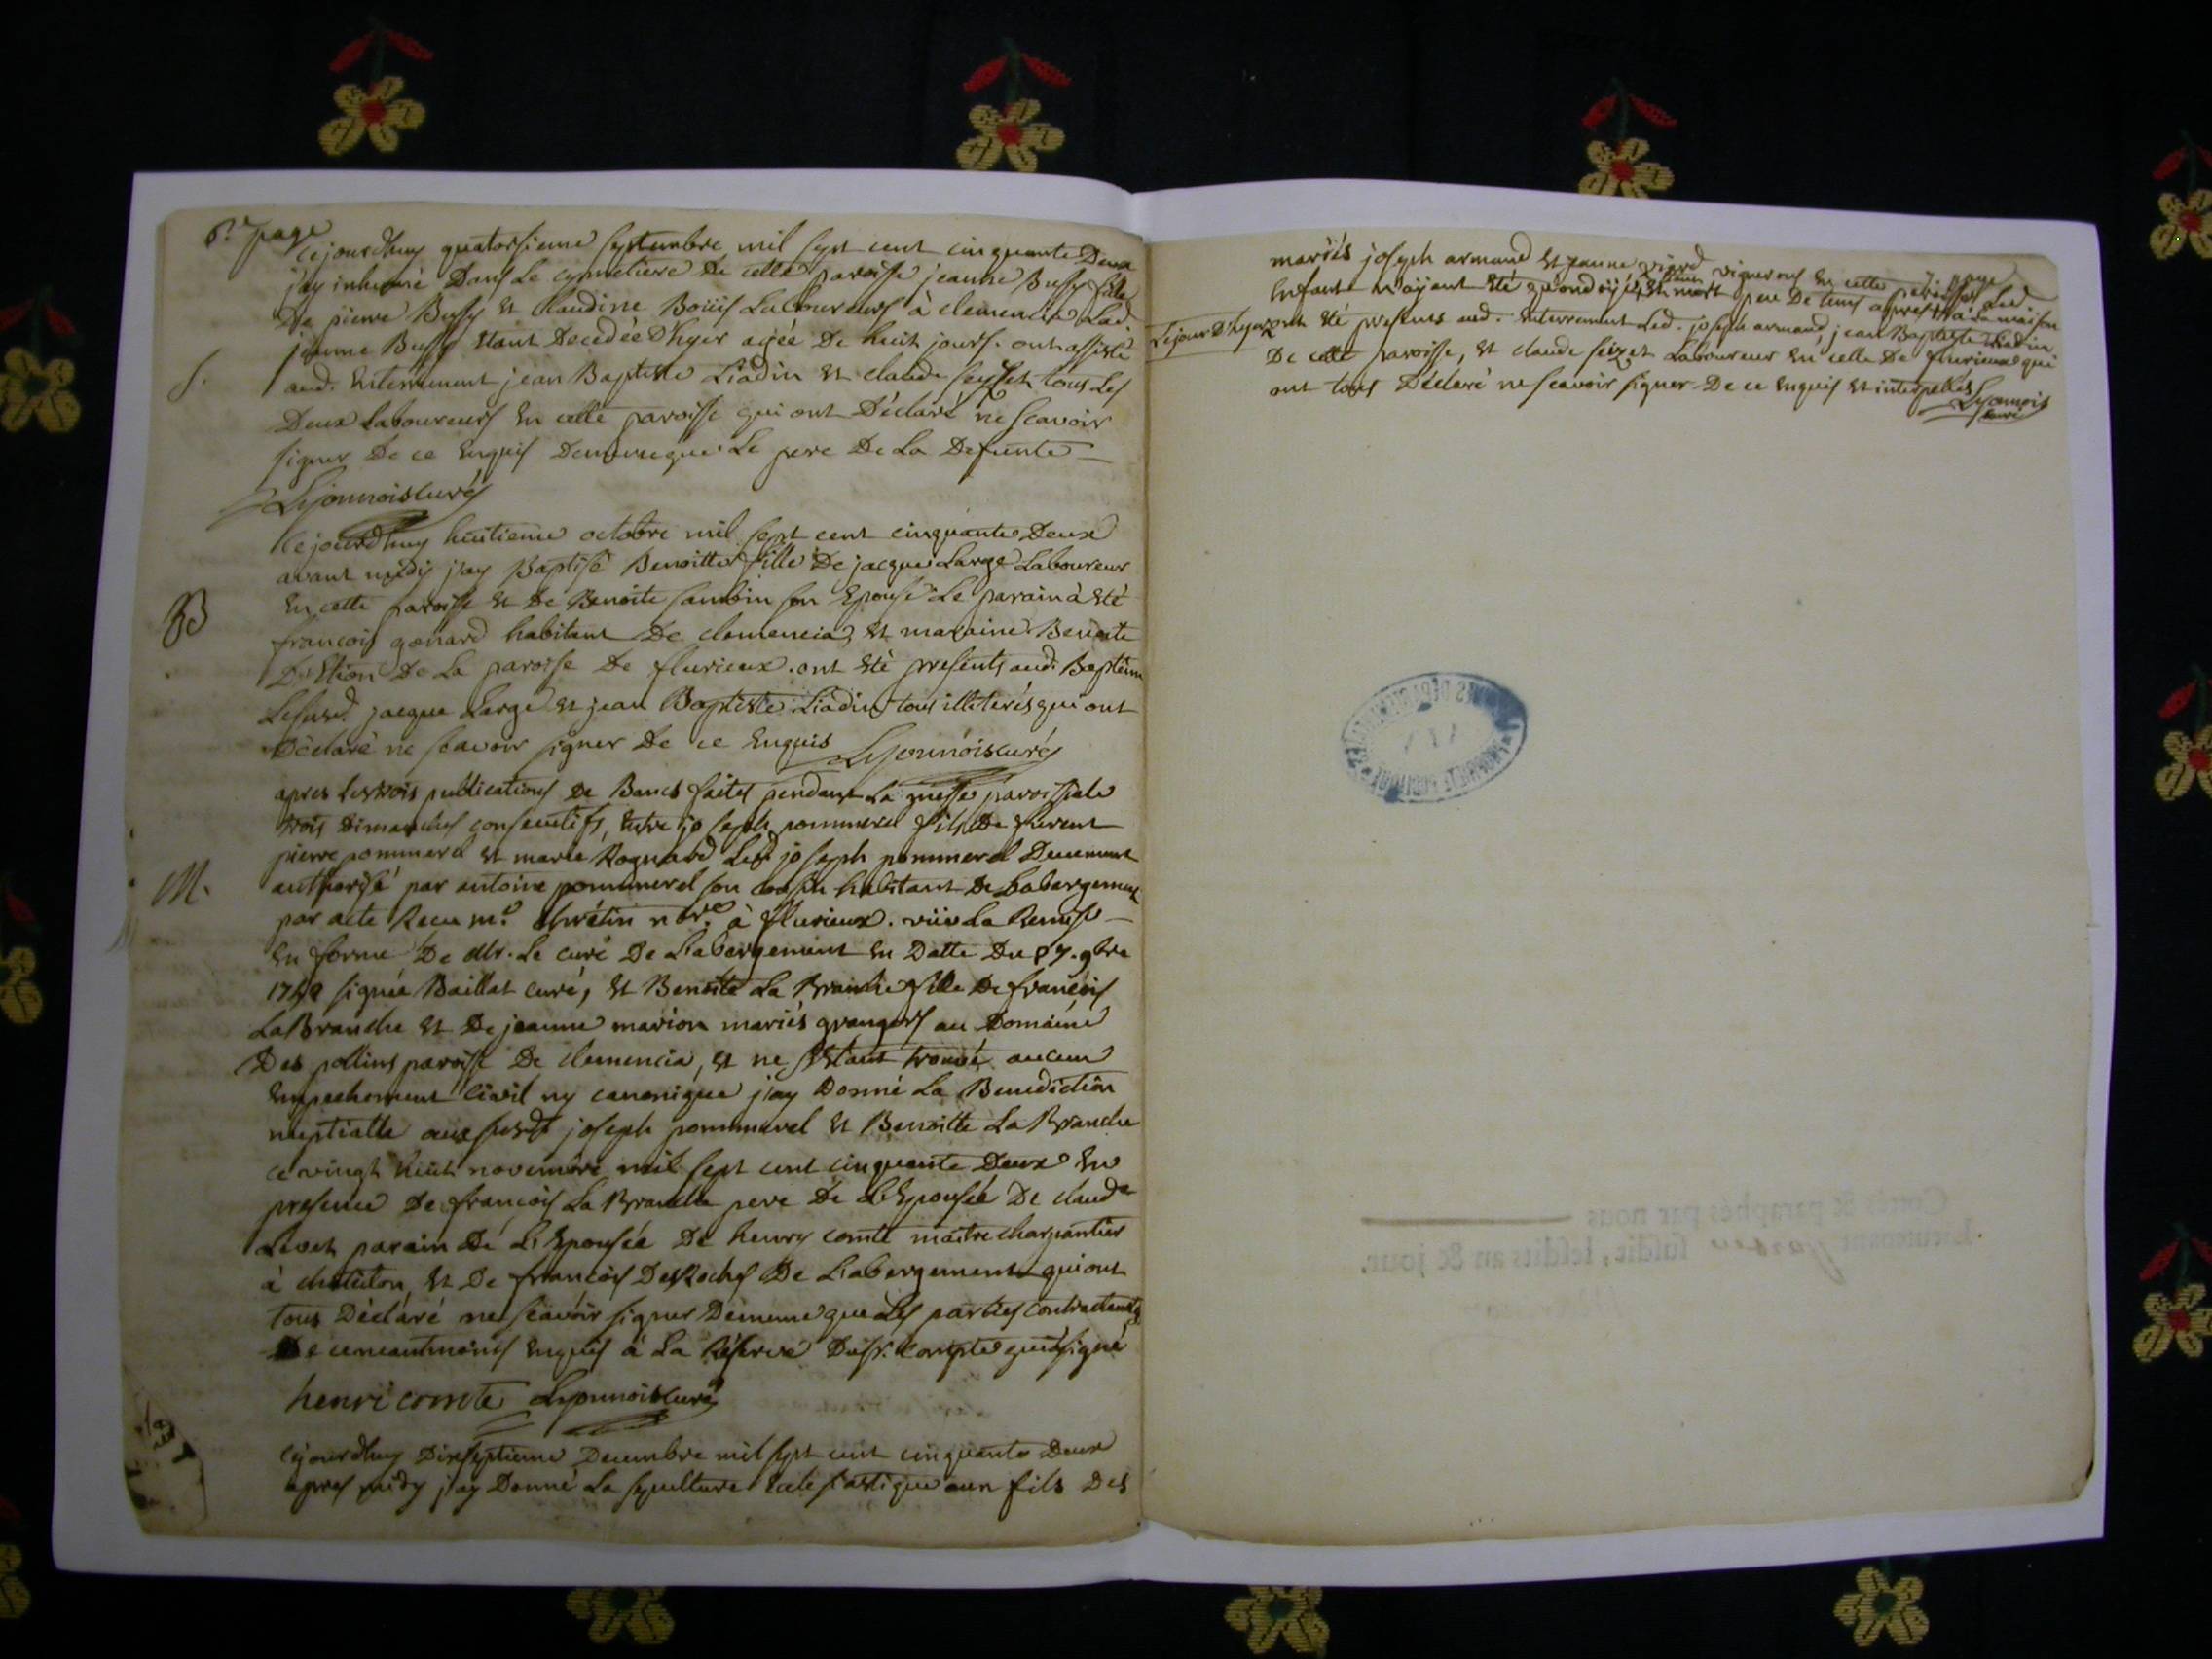 6.e page
Cejourdhuy quatorsieme septembre mil sept cent cinquante Deux
j'ay inhumé Dans Le cymetiere De cette paroisse jeanne Bussy fille
De pierre Bussy et claudine Boüis Laboureurs à clemencia Lad.
jeanne Bussy étant Decedée D'hyer agée De huit jours. ont assisté
S.
aud. Enterrement jean Baptiste Liadin et claude seyset tous Les
Deux Laboureurs En cette paroisse qui ont Déclaré ne scavoir
signer De ce Enquis Dememe que Le pere De La Defunte
Lyonnois curé
Cejourdhuy huitieme octobre mil sept cent cinquante Deux
avant midy j'ay Baptisé Benoitte fille De jacque Large Laboureur
B
En cette paroisse et De Benoite sambin son Epouse Le parain à été
francois gonard habitant De clemencia, et maraine Benoite
De La paroisse De flurieux. ont été presents aud. Baptem
Lesusd. jacque Large et jean Baptiste Liadin tous illiterés qui ont
Déclaré ne scavoir signer De ce Enquis Lyonnois curé
apres Les trois publications De Bancs faites pendant La messe paroissiale
trois Dimanches consecutifs, Entre joseph pommerel fils De
pierre pommerel et marie Rognard Led. joseph pommerel Duement
M.
authorisé par antoine pommerel son habitant De Labergement
par acte Recu m.e chrétin no.re à flurieux. vüe La Remise
En forme De Mr. Le curé De L'abergement En Datte Du 9bre
signée Baillat curé, et Benoite La Branche fille De francois
La Branche et De jeanne marion mariés grangers au Domaine
Des pollins paroisse De clemencia, et ne s'étant trouvé aucun
Empechement Civil ny canonique j'ay Donné La Benediction
nuptialle aux susdt joseph pommerel et Benoitte La Branche
ce vingt huit novembre mil sept cent cinquante Deux En
presence De francois La Branche pere De L'Epousée De claude
Levet parain De L'Epousée De henry comte maitre charpantier
à chatillon, et De francois DesRoches De L'abergement qui ont
tous Déclaré ne scavoir signer Dememe que Les parties contractants
De ce Enquis à La Réserve Dusr. Compte qui a signé
henri comte Lyonnois curé
Cejourdhuy Dixseptieme Decembre mil sept cent cinquante Deux
apres midy j'ay Donné La sepulture Eclesiastique a un fils Des
7. page
mariés joseph armand et jeanne vignerons En cette paroisse Led.
Enfant n'ajant été qu'ondoijé, et mort peu De tems apres à La maison
Le jour D'hyer ont été presents aud. Enterrement Led. joseph armand, jean Baptiste Liadin
De cette paroisse, et claude seizet Laboureur En celle De flurieux qui
ont tous Déclaré ne scavoir signer De ce Enquis et interpellés
Lyonnois
curé
Cottés & paraphés par nous
Lieutenant susdit, lesdits an & jour.